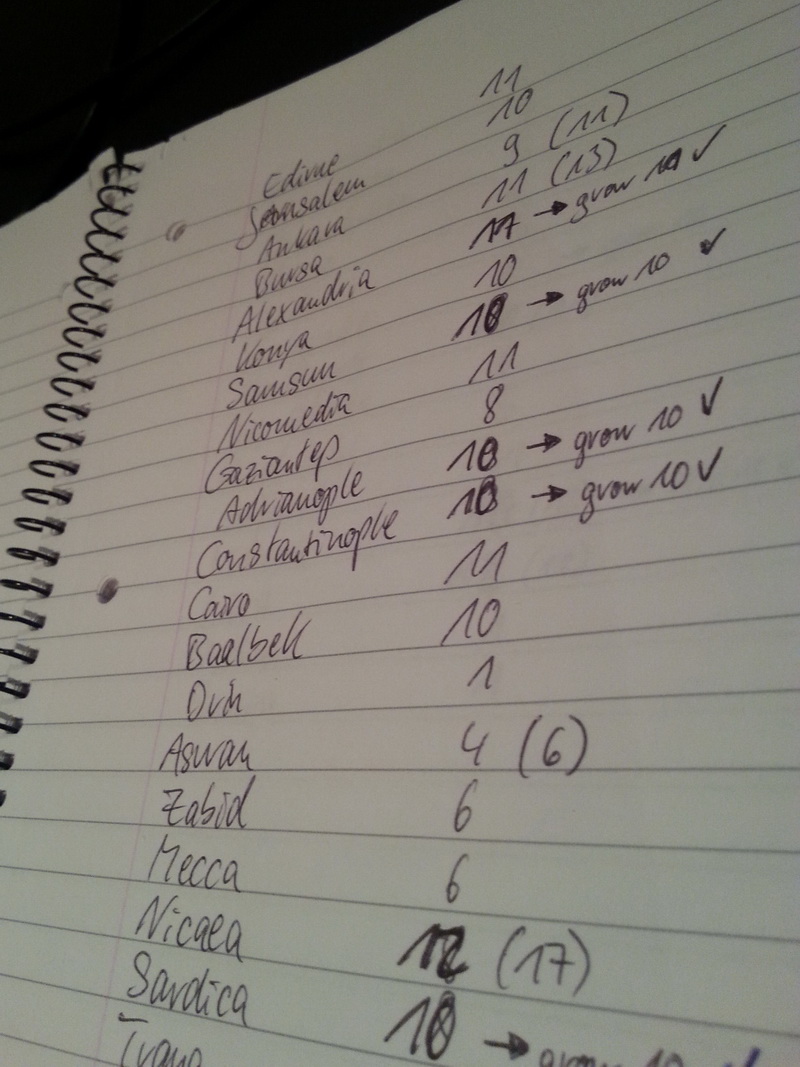 Edirne 11
Jerusalem 10
Ankara 9 (11)
Bursa 11 (13)
Alexandria → grow 10 ✓
Konya 10
Samsun 10 → grow 10 ✓
Nicomedia 11
Gaziantep 8
Adrianople 10 → grow 10 ✓
Constantinople 10 → grow 10 ✓
Cairo 11
Baalbek 10
Dvin 1
Aswan 4 (6)
Zabid 6
Mecca 6
Nicaea 12 (17)
Sardica 10 → grow 10